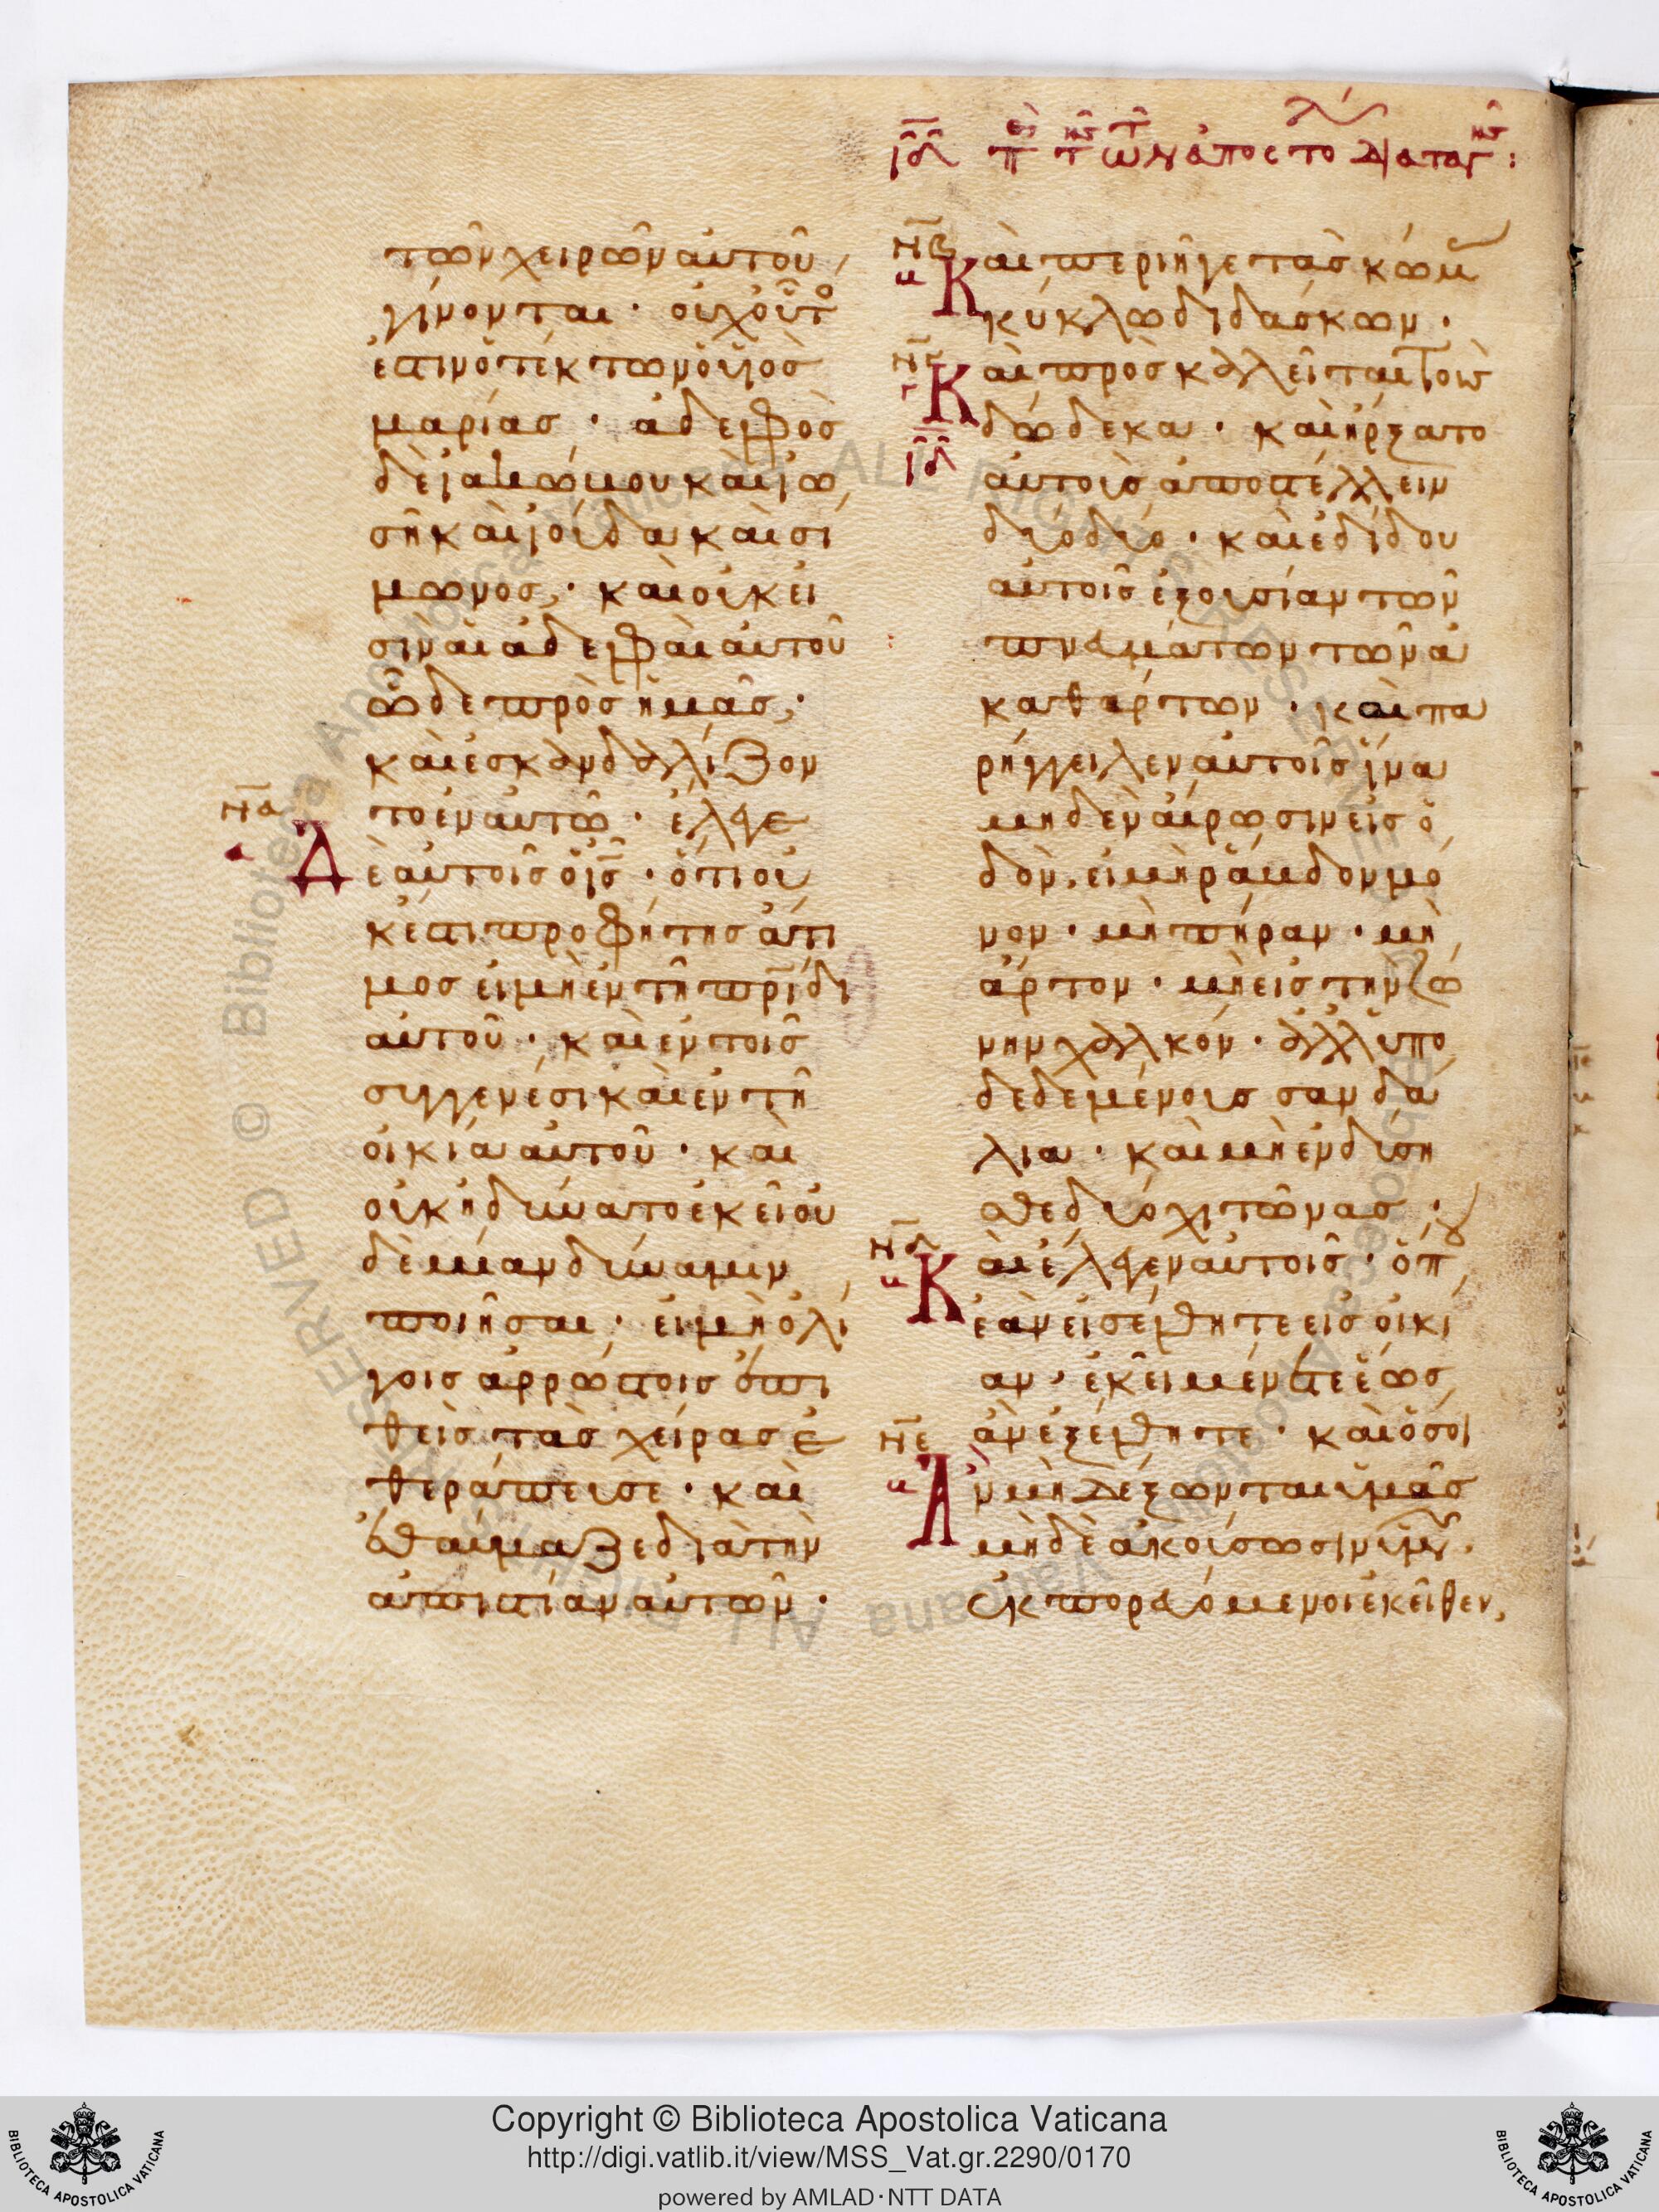 ιδ̅ π τ τῶν ἀποστόλ διαταγ :
τῶν χειρῶν αὐτοῦ
γίνονται · οὐχ οὗτο
ἐστιν ὁ τέκτων ὁ υἱὸς
μαρίας · ἀδελφὸς
δὲ ἰακώβου καὶ ἰω
σῆ καὶ ἰούδα καὶ σι
μωνος · καὶ οὐκ εἰ
σὶν αἱ ἀδελφαὶ αὐτοῦ
ὧδε πρὸς ἡμᾶς ·
καὶ ἐσκανδαλίζον
το ἐν αὐτῶ · ἔλεγε
νᾱ
Δὲ αὐτοῖς ὁ ἰς̅ · ὅτι οὐ
κ ἔστι προφήτης ἄτι
μος εἰ μὴ ἐν τῆ πρ̅ίδι
αὐτοῦ · καὶ ἐν τοῖς
συγγενέσι καὶ ἐν τῆ
οἰκία αὐτοῦ · καὶ
οὐκ ἠδύνατο ἐκεῖ οὐ
δεμίαν δύναμιν
ποιῆσαι · εἰ μὴ ὀλί
γοις ἀρρώστοις ἐπι
θεὶς τὰς χεῖρας ἐ
θεράπευσε · καὶ
ἐθαύμαζε διὰ τὴν
ἀπιστίαν αὐτῶν ·
νβ̅
Καὶ περιῆγε τὰς κώμ
κύκλω διδάσκων ·
νγ̅
Καὶ προσκαλεῖται τοὺς
δώδεκα · καὶ ἤρξατο
ιδ̅
αὐτοὺς ἀποστέλλειν
δύο δύο · καὶ ἐδίδου
αὐτοῖς ἐξουσίαν τῶν
πνευμάτων τῶν ἀ
καθάρτων · καὶ πα
ρήγγειλεν αὐτοῖς ἵνα
μηδὲν αἴρωσιν εἰς ὁ
δὸν, εἰ μὴ ῥάβδον μό
νον · μὴ πήραν · μὴ
ἄρτον · μὴ εἰς τὴν ζώ
νην χαλκόν · ἀλλ' ὑπο
δεδεμένους σανδά
λια · καὶ μὴ ἐνδύση
σθε δύο χιτῶνας ·
νδ̅
Καὶ ἔλεγεν αὐτοῖς · ὅπ
ἐὰν εἰσέλθητε εἰς οἰκί
αν · ἐκεῖ μένετε ἕως
ἂν ἐξέλθητε · καὶ ὅσοι
νε̅
Ἂν μὴ δέξωνται ὑμᾶς
μηδὲ ἀκούσωσιν ὑμῶν ·
ἐκπορευόμενοι ἐκεῖθεν,
Copyright © Biblioteca Apostolica Vaticana
http://digi.vatlib.it/view/MSS_Vat.gr.2290/0170
powered by AMLAD·NTT DATA
BIBLIOTECA APOSTOLICA VATICANA
BIBLIOTECA APOSTOLICA VATICANA